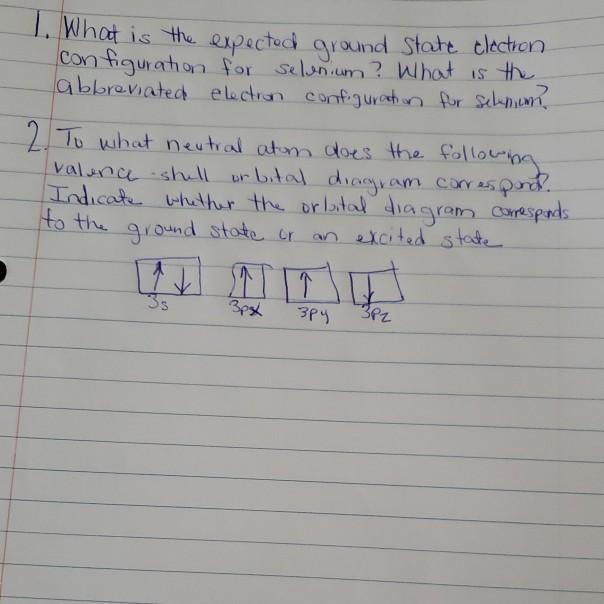 1. What is the expected ground state electron
configuration for selenium? What is the
abbreviated electron configuration for selenium?
2. To what neutral atom does the following
valence-shell orbital diagram correspond?
Indicate whether the orbital diagram corresponds
to the ground state or an excited state
↑ ↓ ↑ ↑ ↓
3s 3px 3py 3pz